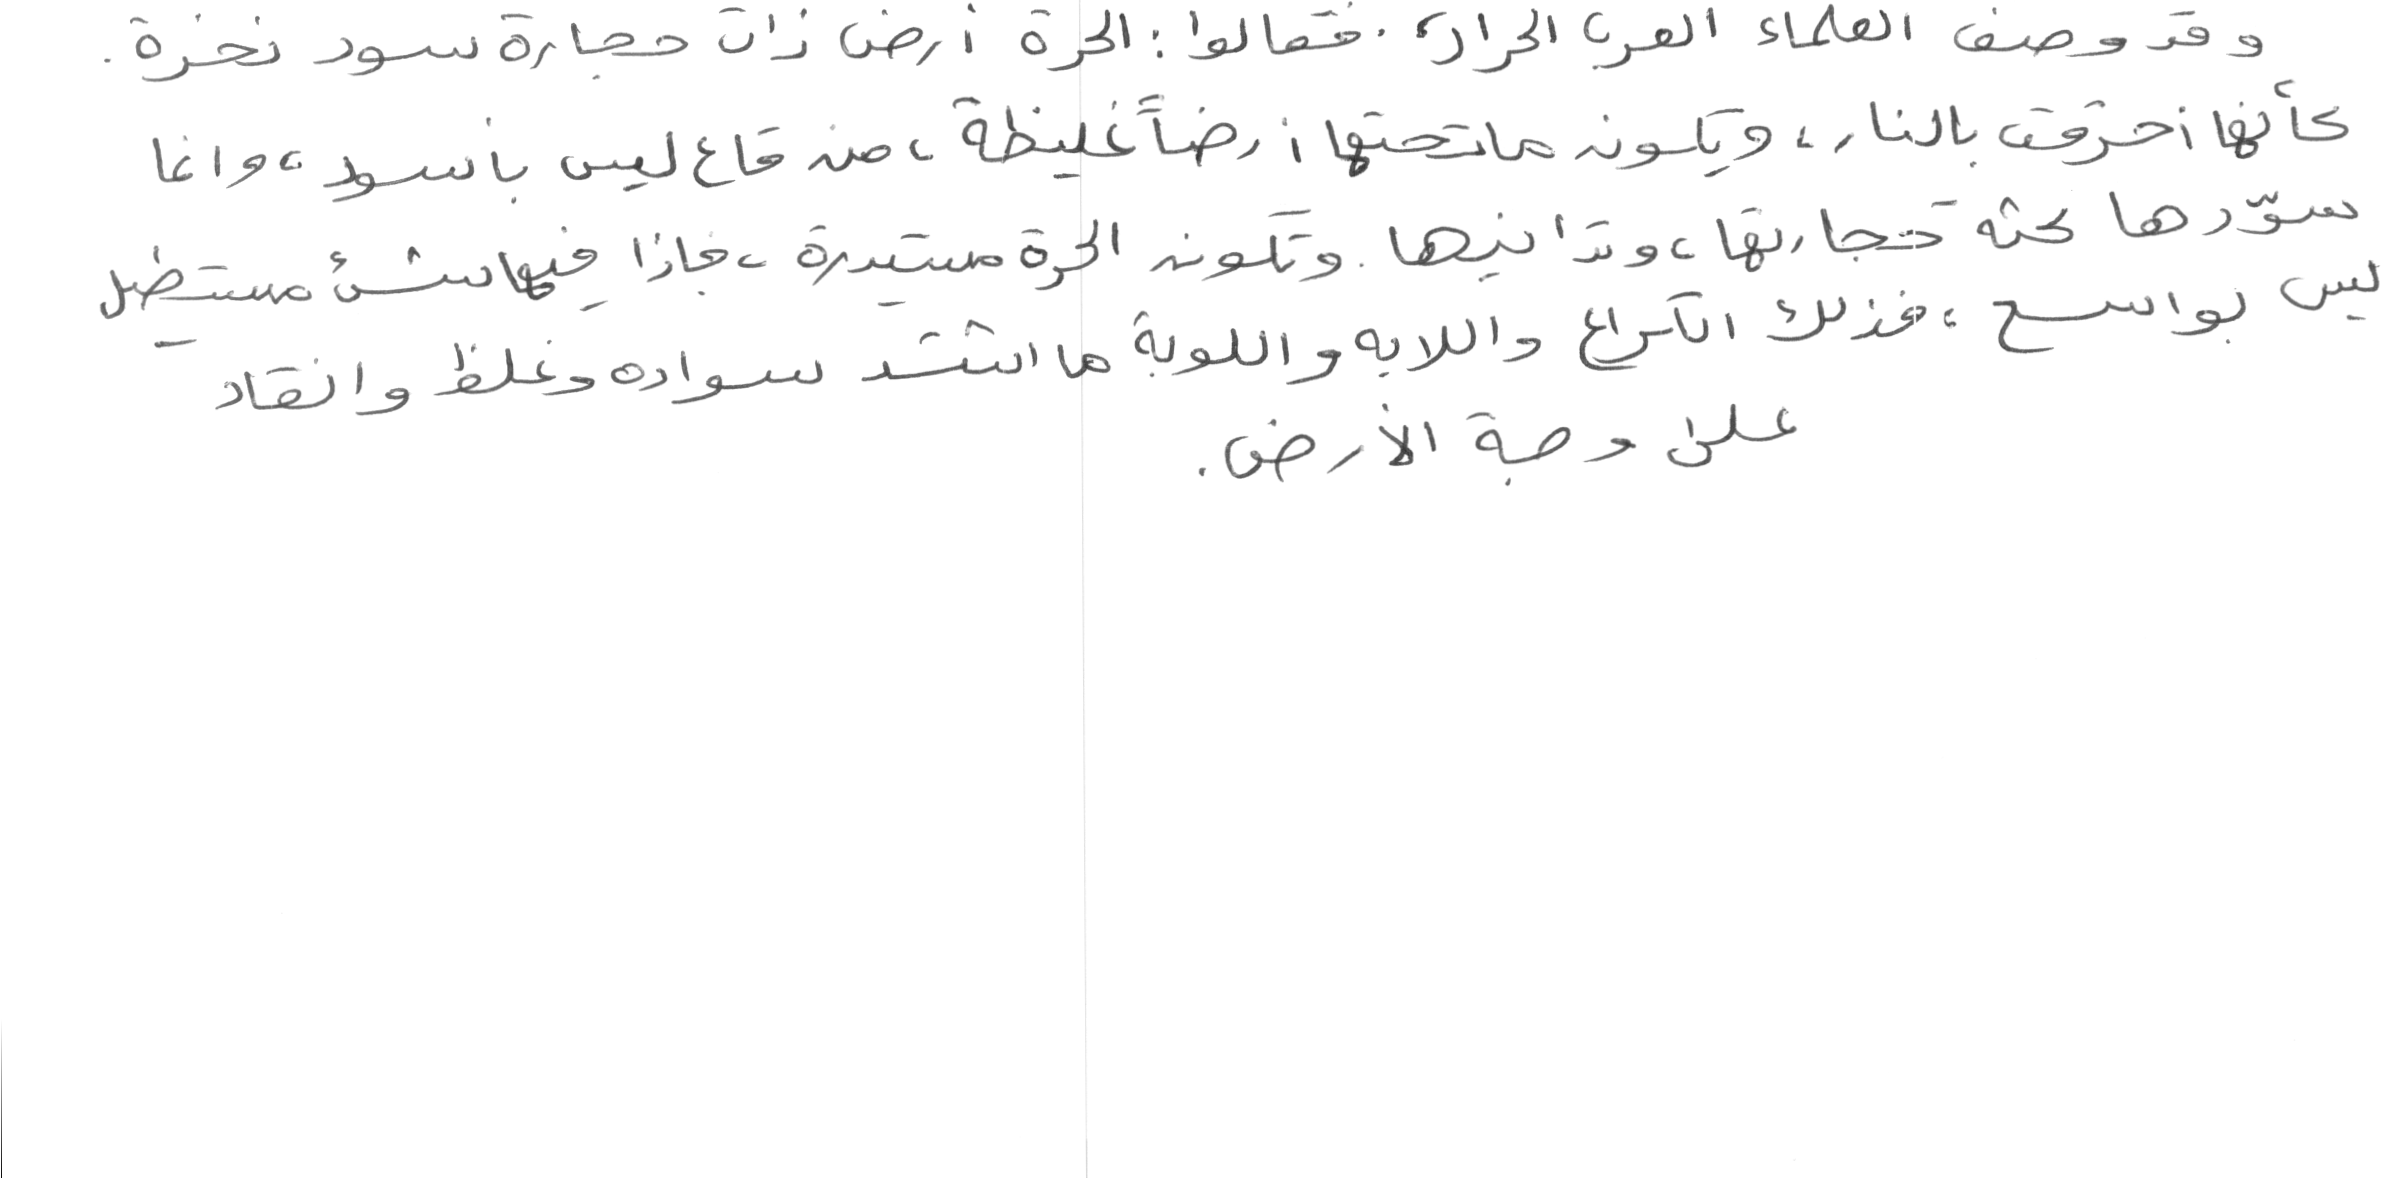 وقد وصف العلماء العرب الحرار، فقالوا: الحرة أرض ذات حجارة سود نخرة.
كأنها أحرقت بالنار، ويكون ما تحتها أرضاً غليظة، من قاع ليس بأسود، وانما
سوّدها كثرة حجارتها، وتدانيها. وتكون الحرة مستديرة، فاذا فيها شئ مستطيل
ليس بواسع، فذلك الكراع واللابه واللوبة ما اشتد سواده وغلظ وانقاد
على وجه الأرض.